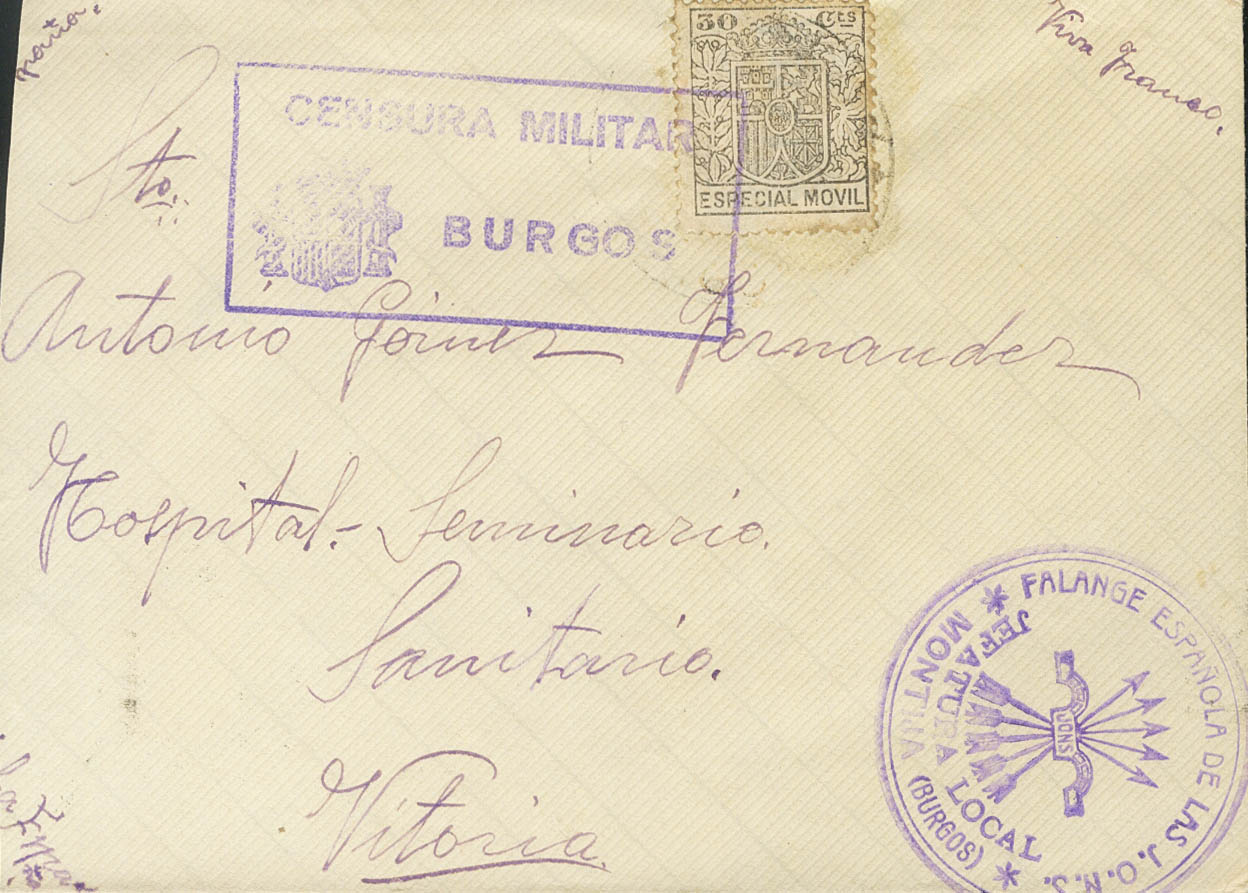 Viva Franco.
30 Cts
ESPECIAL MOVIL
CENSURA MILITAR
BURGOS
Sto.
Antonio Gómez Fernandez
Hospital.- Seminario.
Sanitario.
Vitoria.
FALANGE ESPAÑOLA DE LAS J.O.N.S.
JEFATURA LOCAL
(BURGOS)
JONS